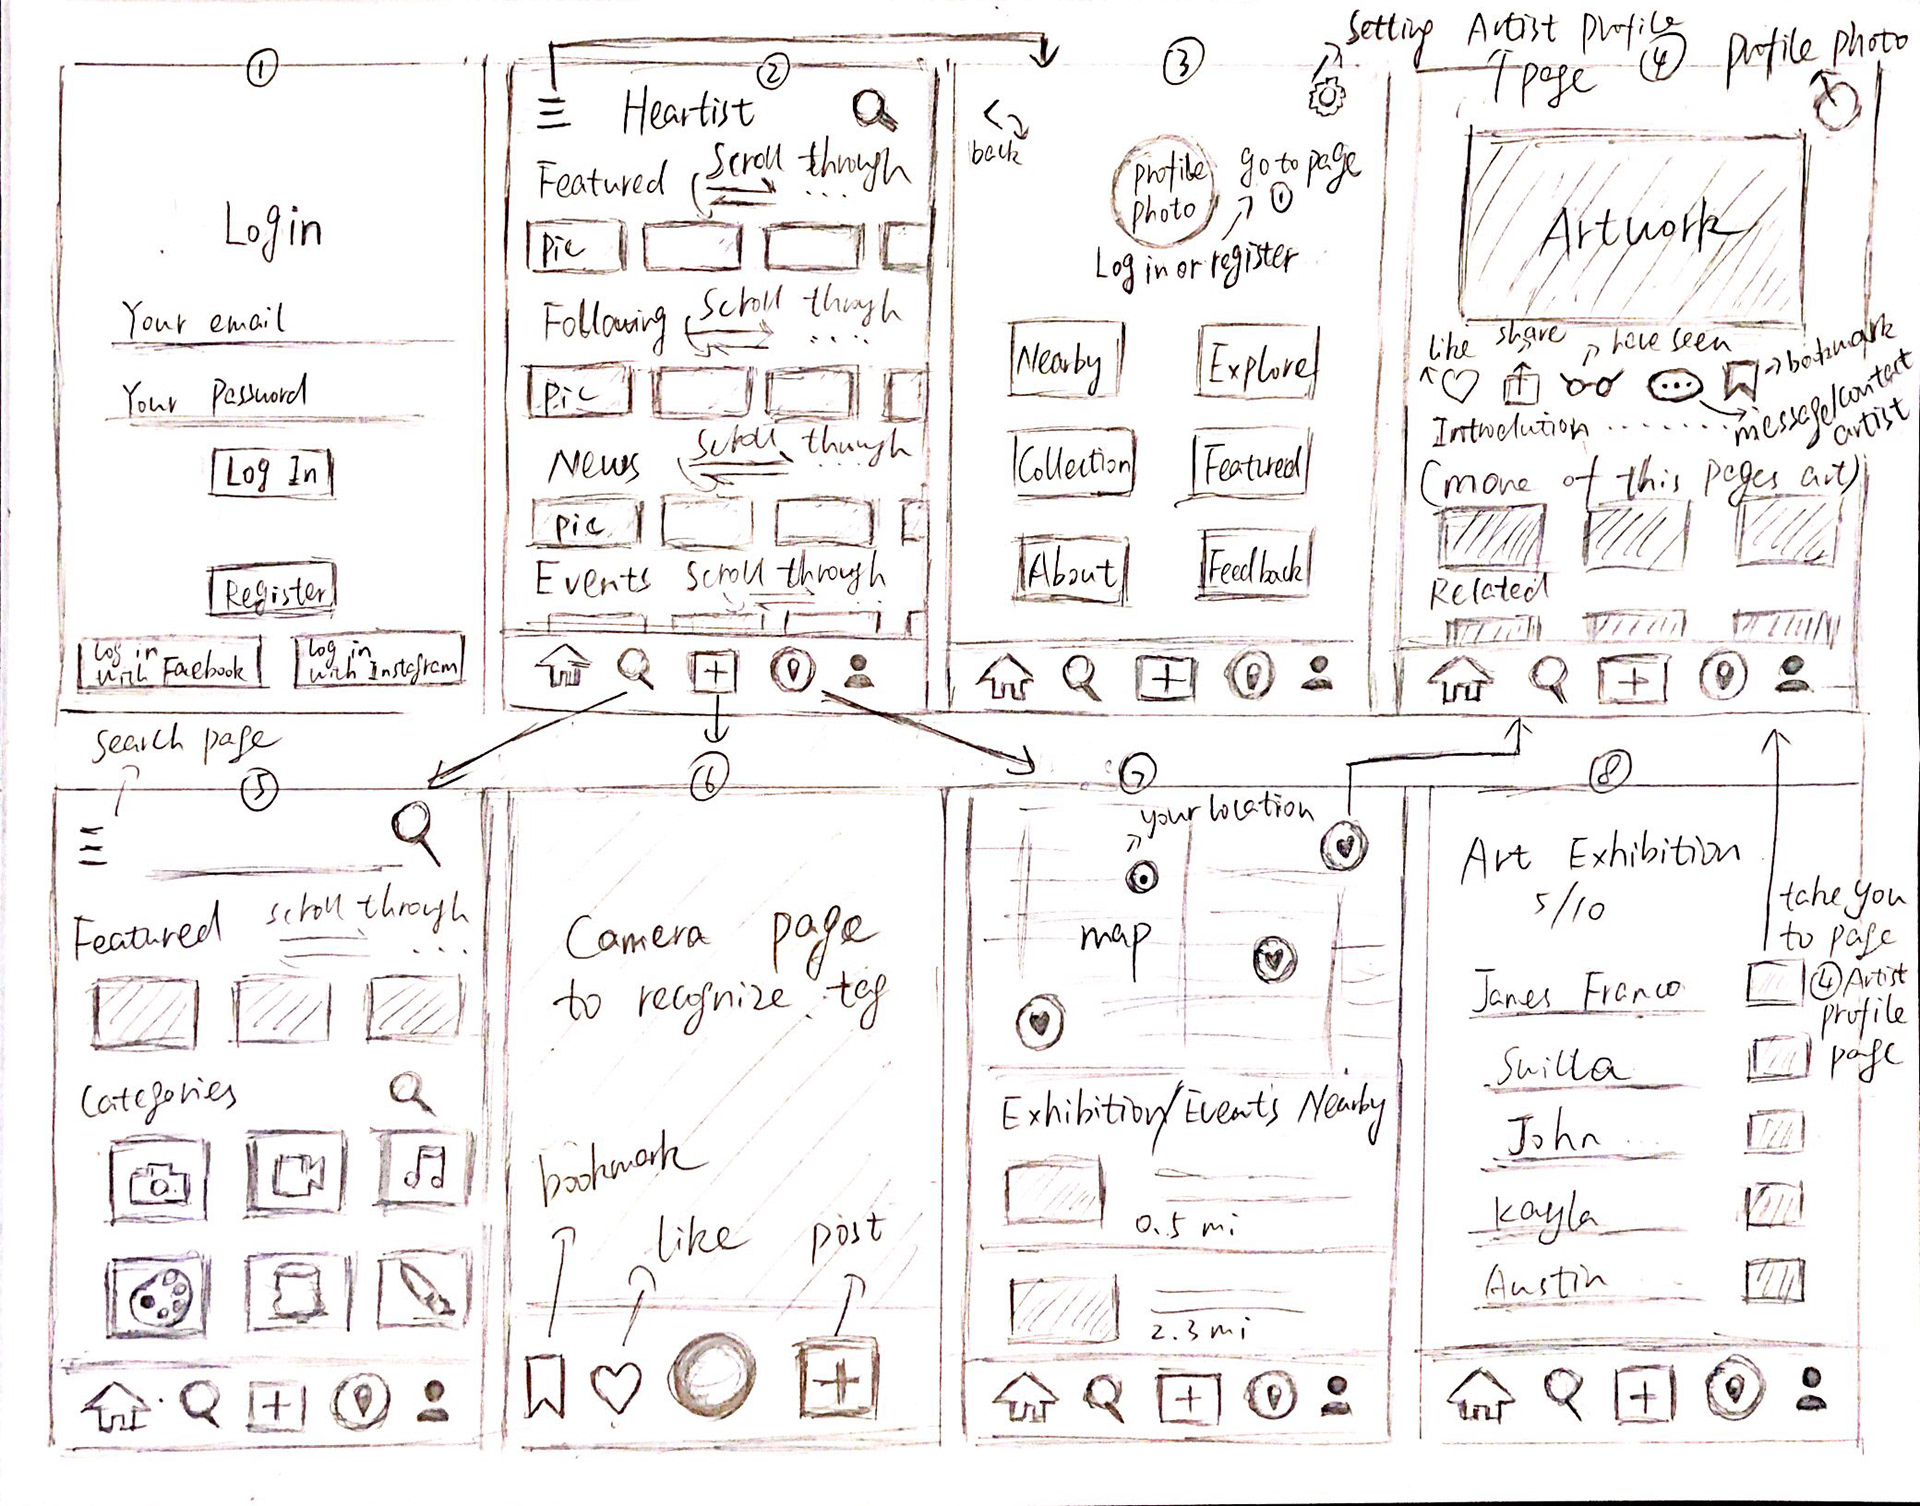 ①
Login
Your email
Your password
Log In
Register
Log in with Facebook
Log in with Instagram
②
Heartist
Featured
Scroll through
....
Pic
Following
Scroll through
....
Pic
News
Scroll through
....
Pic
Events
Scroll through
③
Setting
back
profile photo
go to page ①
Log in or register
Nearby
Explore
Collection
Featured
About
Feedback
Artist profile page
④
profile photo
Artwork
like
share
have seen
bookmark
message/contact artist
Introdution .......
(more of this pages art)
Related
Search page
⑤
Featured
scroll through
...
Categories
⑥
Camera page
to recognize tag
bookmark
like
post
⑦
your location
map
Exhibition/Events Nearby
0.5 mi
2.3 mi
⑧
Art Exhibition
5/10
James Franco
John
Kayla
Austin
take you
to page
④ Artist
profile
page